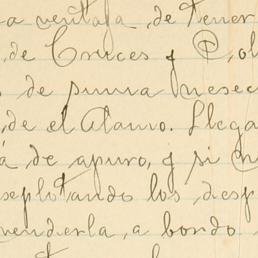 a ventaja de tener
de Cruces y P, ol
s de suma nece
de el Alamo. Llega
á de apuro, y si
esplotando los desp
venderla, a bordo